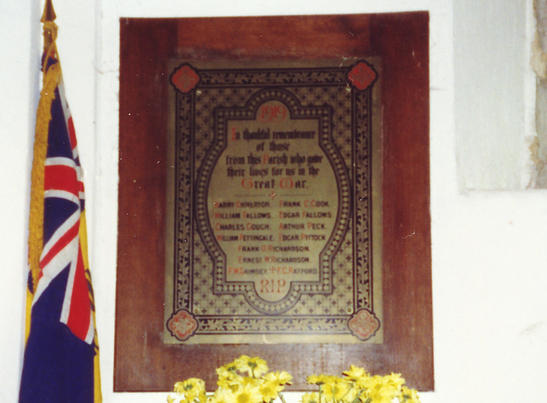 1919
In thankful remembrance
of those
from this Parish who gave
their lives for us in the
Great War.
HARRY FRANK C. COOK.
WILLIAM FALLOWS. EDGAR FALLOWS.
CHARLES GOUGH. ARTHUR PECK.
WILLIAM PETTINGALE. EDGAR PITTOCK.
FRANK G. RICHARDSON.
ERNEST RICHARDSON.
R.I.P